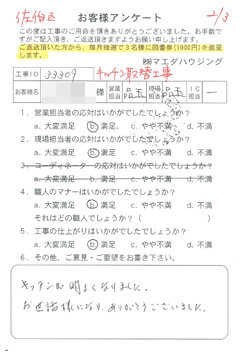 佐伯区 2/3
お客様アンケート
この度は工事のご用命を頂きありがとうございました。お手数で
すがご記入頂き、ご返送頂きますようお願い申し上げます。
ご返送頂いた方から、毎月抽選で3名様に図書券(1000円)を進呈
します。
㈱マエダハウジング
工事ID 33909 キッチン取替工事
お客様名 様 営業担当 現場担当 IC担当 ー
1. 営業担当者の応対はいかがでしたでしょうか?
a. 大変満足 b. 満足 c. やや不満 d. 不満
2. 現場担当者の応対はいかがでしたでしょうか?
a. 大変満足 b. 満足 c. やや不満 d. 不満
3. コーディネーターの応対はいかがでしたでしょうか?
a. 大変満足 b. 満足 c. やや不満 d. 不満
4. 職人のマナーはいかがでしたでしょうか?
a. 大変満足 b. 満足 c. やや不満 d. 不満
それはどの職人でしょうか?( )
5. 工事の仕上がりはいかがでしたでしょうか?
a. 大変満足 b. 満足 c. やや不満 d. 不満
6. その他、ご意見・ご要望をお書き下さい。
キッチンが明るくなりました。
お世話様になり、ありがとうございました。